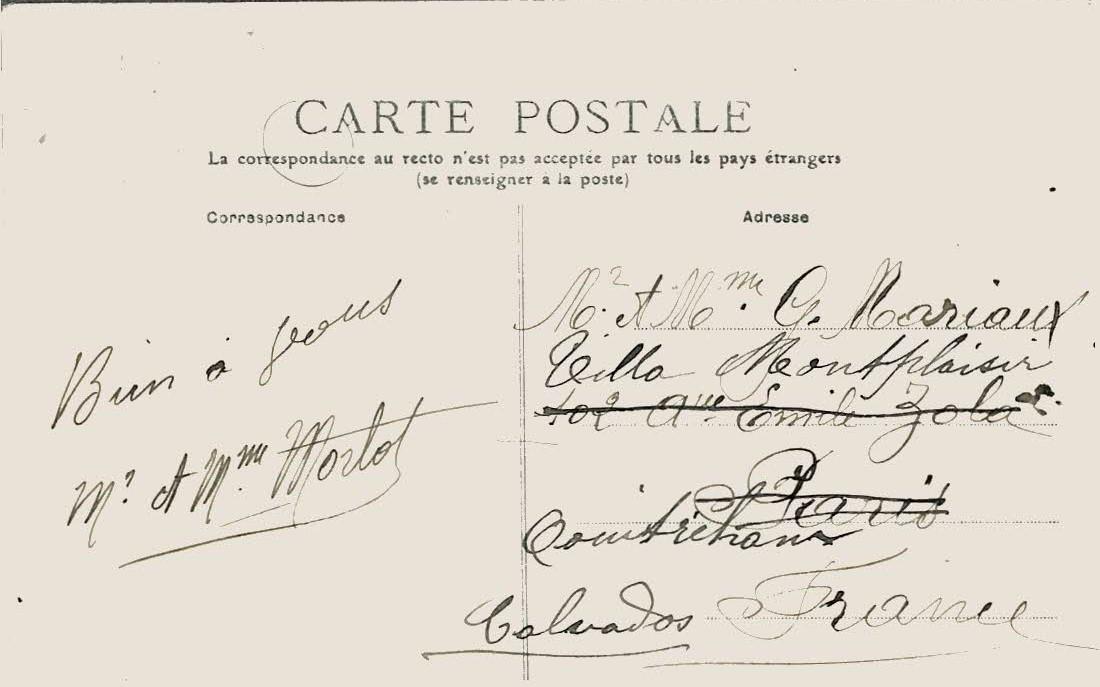 CARTE POSTALE
La correspondance au recto n'est pas acceptée par tous les pays étrangers
(se renseigner à la poste)
Correspondance
Adresse
Bien à vous
Mr et Mme Morlot
Mr et Mme G. Mariaux
Villa Montplaisir
102 Aue Emile Zola
Paris
Calvados France